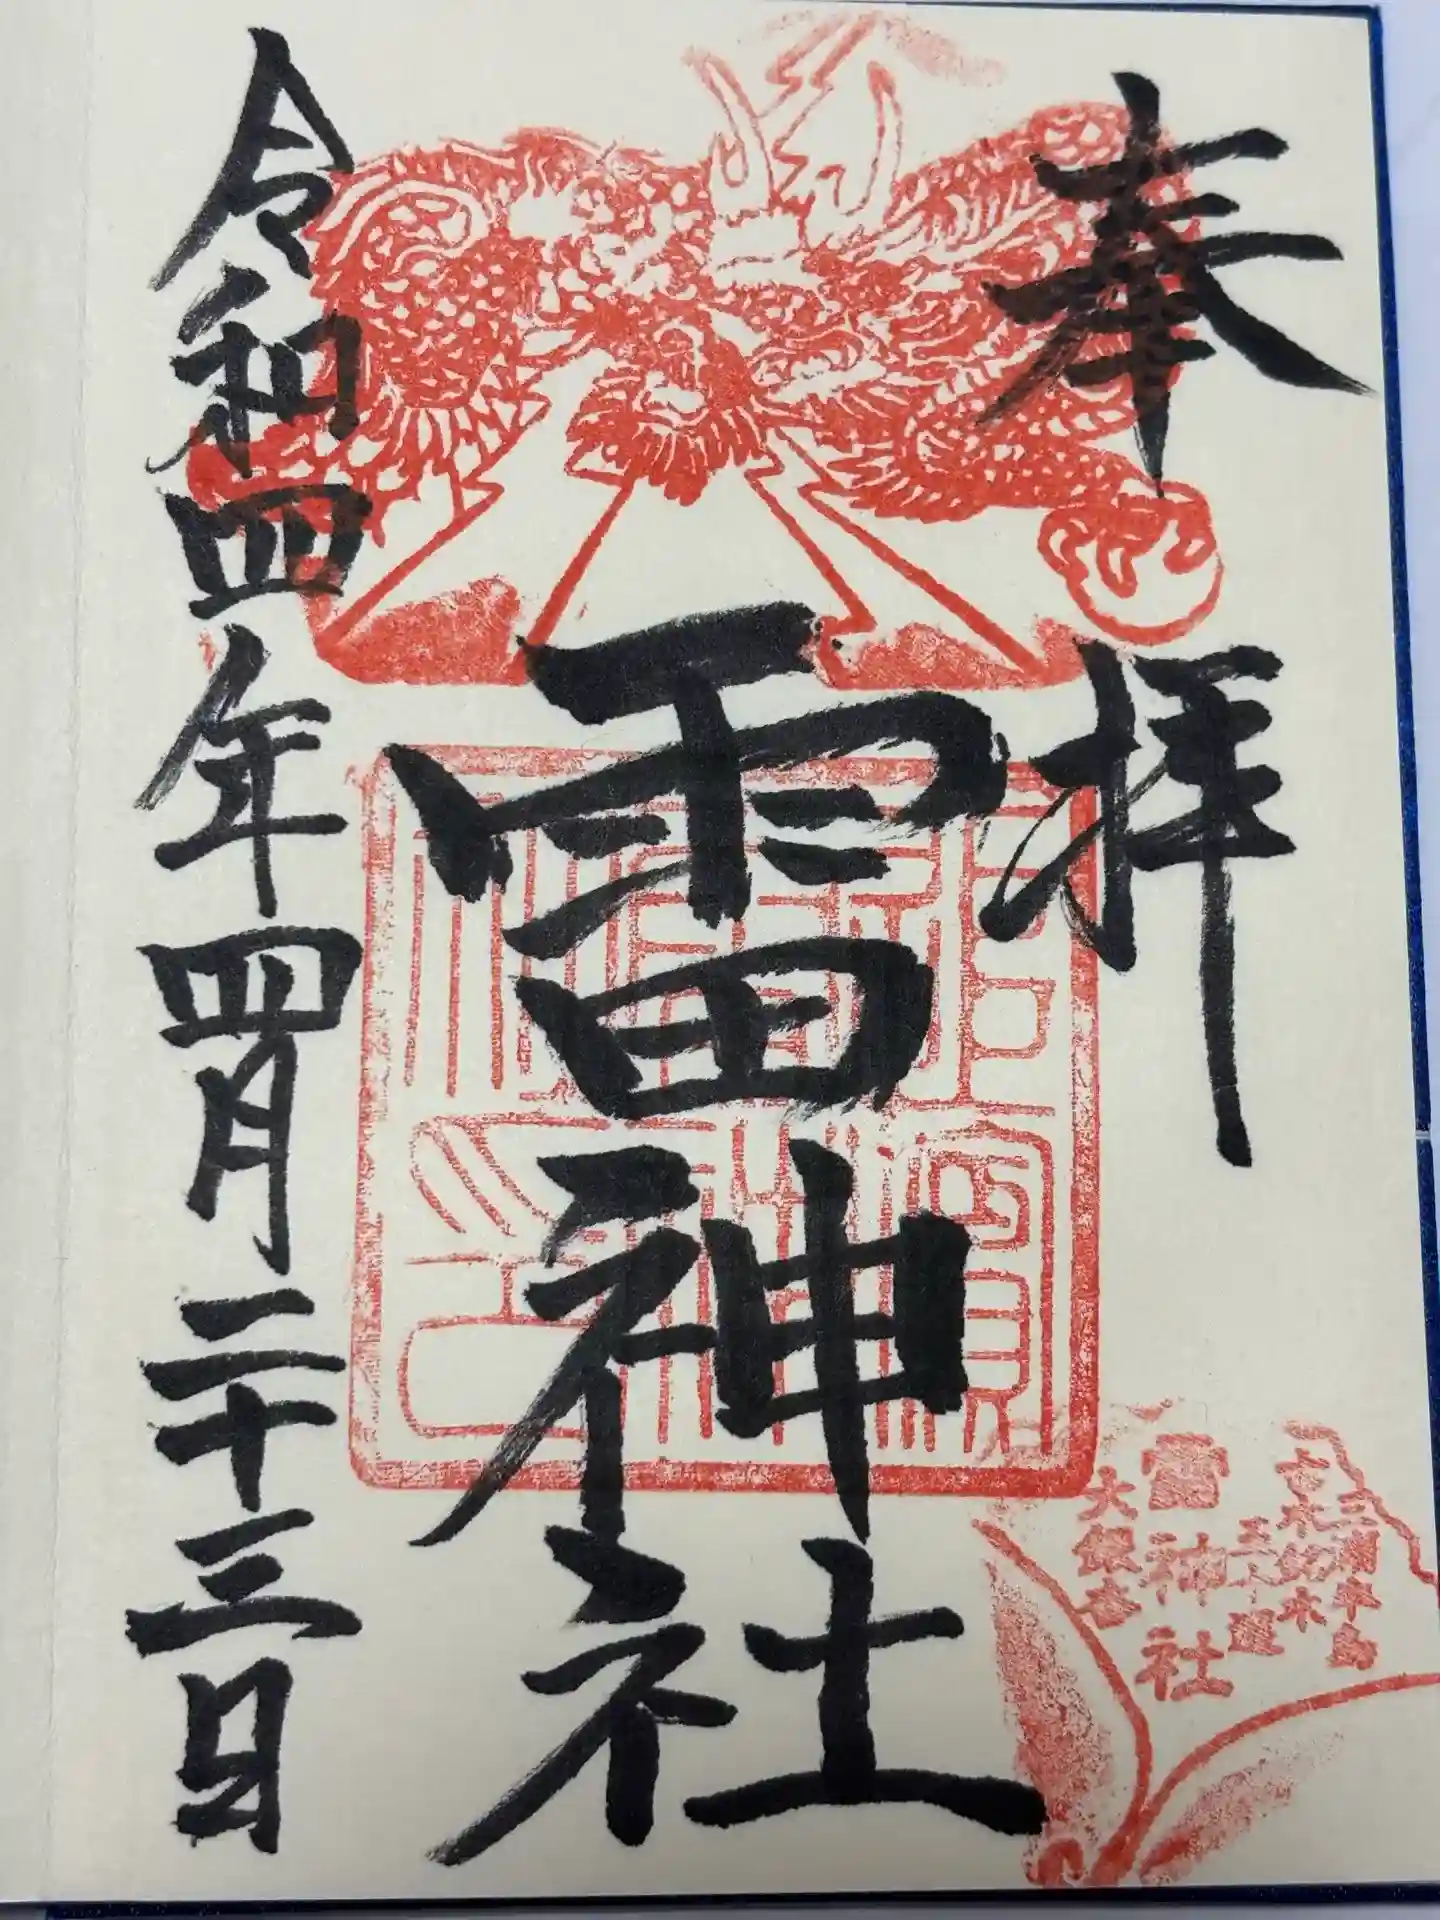 奉拝
雷神社
令和四年四月二十三日
三浦半島
古木銘木
三十選
雷神社
大銀杏